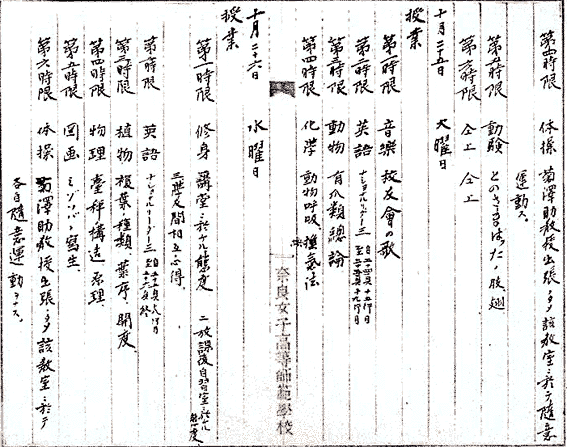 第四時限 体操 菊澤助教授出張ノタメ該教室ニ於テ随意
運動ス。
第五時限 動験 とのさまばつたノ肢、翅
第六時限 仝上 仝上
十月二十五日 火曜日
授業
第一時限 音樂 校友會の歌
第二時限 英語 ナショナルリーダー三 自二十四頁十五行目 至二十五頁十九行目
第三時限 動物 有爪類總論
第四時限 化学 動物呼吸、換氣法
奈良女子高等師範學校
十月二十六日 水曜日
授業
第一時限 修身 一、講堂ニ於ケル態度 二、放課後自習室ニ於ケル態度
三、階段及間相互ノ心得。
第二時限 英語 ナショナルリーダー三
第三時限 植物 複葉ノ種類、葉序、開度
第四時限 物理 臺秤構造、原理
第五時限 図画 ミゾソバノ寫生
第六時限 体操 菊澤助教授出張ノタメ該教室ニ於テ
各自随意運動ヲナス。